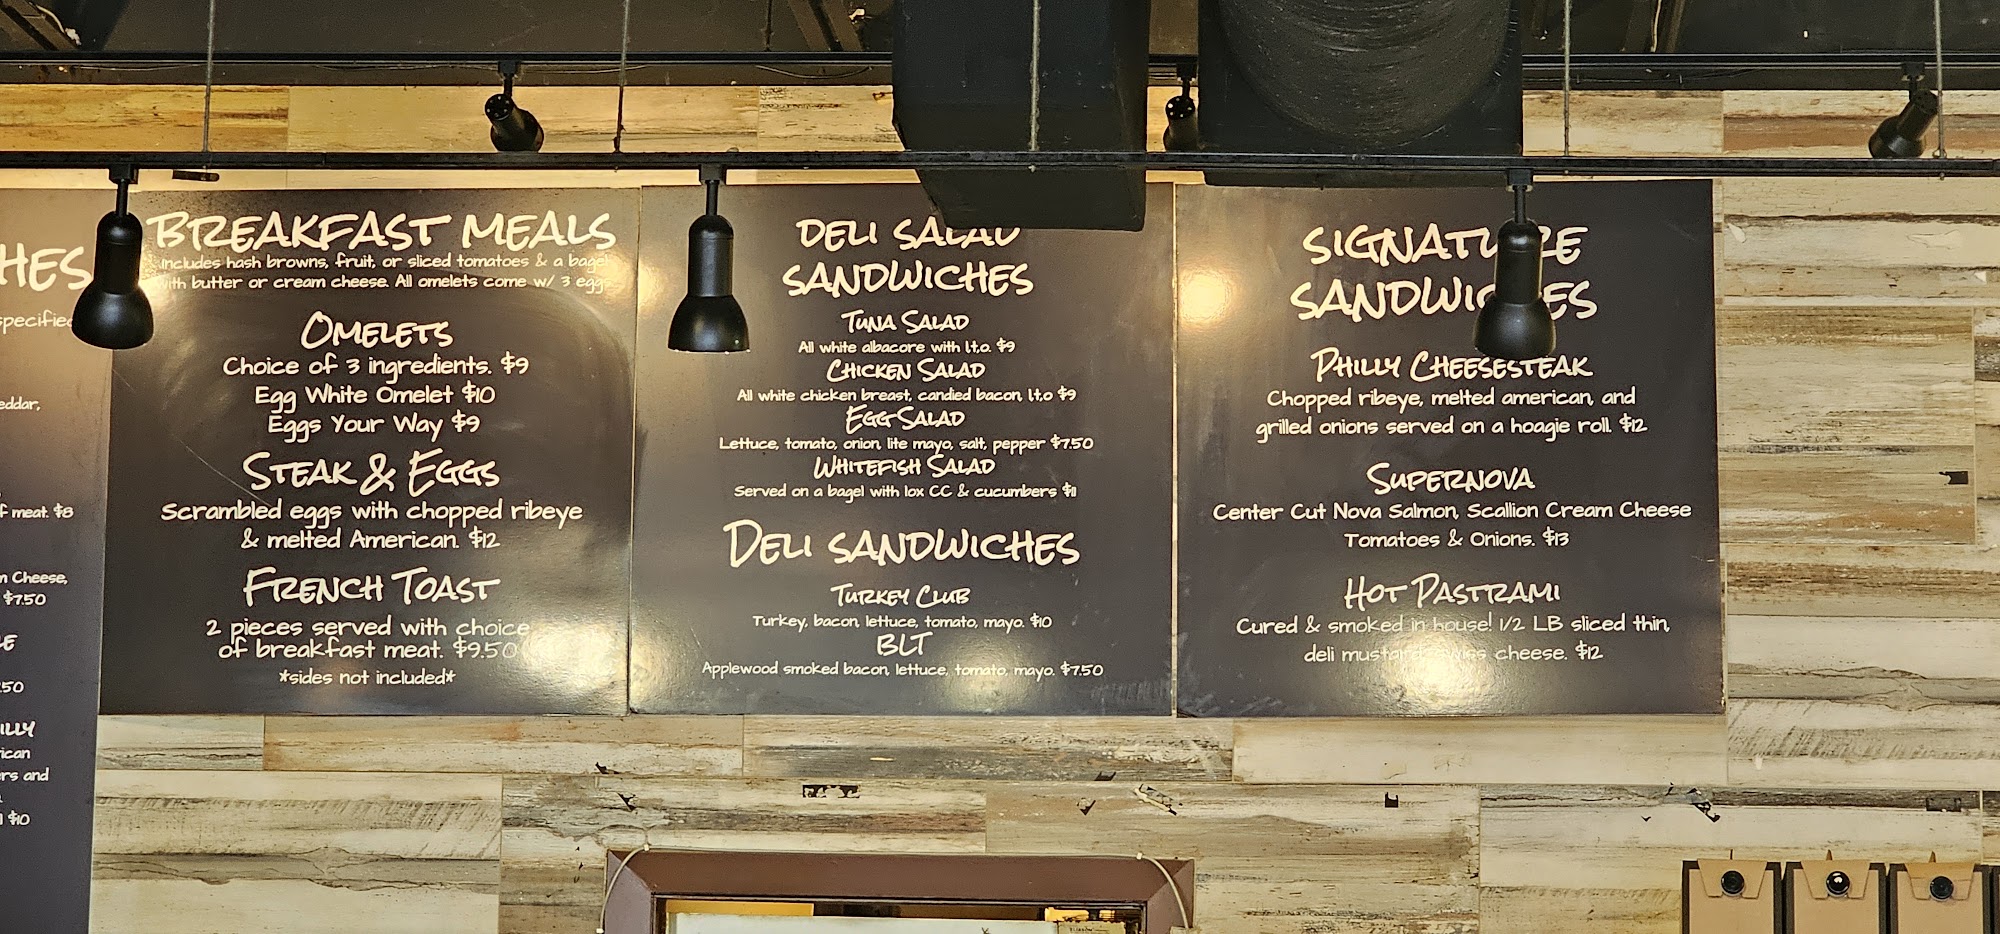 HES
specified
eddar,
f meat. $8
n Cheese,
$7.50
.50
ILLY
ican
ers and
$10
BREAKFAST MEALS
includes hash browns, fruit, or sliced tomatoes & a bagel
with butter or cream cheese. All omelets come w/ 3 eggs
OMELETS
Choice of 3 ingredients. $9
Egg White Omelet $10
Eggs Your Way $9
STEAK & EGGS
Scrambled eggs with chopped ribeye
& melted American. $12
FRENCH TOAST
2 pieces served with choice
of breakfast meat. $9.50
*sides not included*
DELI SALAD
SANDWICHES
TUNA SALAD
All white albacore with l,t,o. $9
CHICKEN SALAD
All white chicken breast, candied bacon, l,t,o $9
EGG SALAD
Lettuce, tomato, onion, lite mayo, salt, pepper $7.50
WHITEFISH SALAD
Served on a bagel with lox CC & cucumbers $11
DELI SANDWICHES
TURKEY CLUB
Turkey, bacon, lettuce, tomato, mayo. $10
BLT
Applewood smoked bacon, lettuce, tomato, mayo. $7.50
SIGNATURE
SANDWICHES
PHILLY CHEESESTEAK
Chopped ribeye, melted american, and
grilled onions served on a hoagie roll. $12
SUPERNOVA
Center Cut Nova Salmon, Scallion Cream Cheese
Tomatoes & Onions. $13
HOT PASTRAMI
Cured & smoked in house! 1/2 LB sliced thin,
deli mustard, swiss cheese. $12